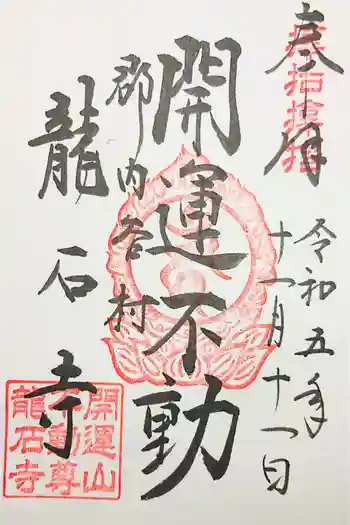 奉拝
令和五年
十一月十一日
開運不動
郡内吉村
龍石寺
開運山
不動尊
龍石寺